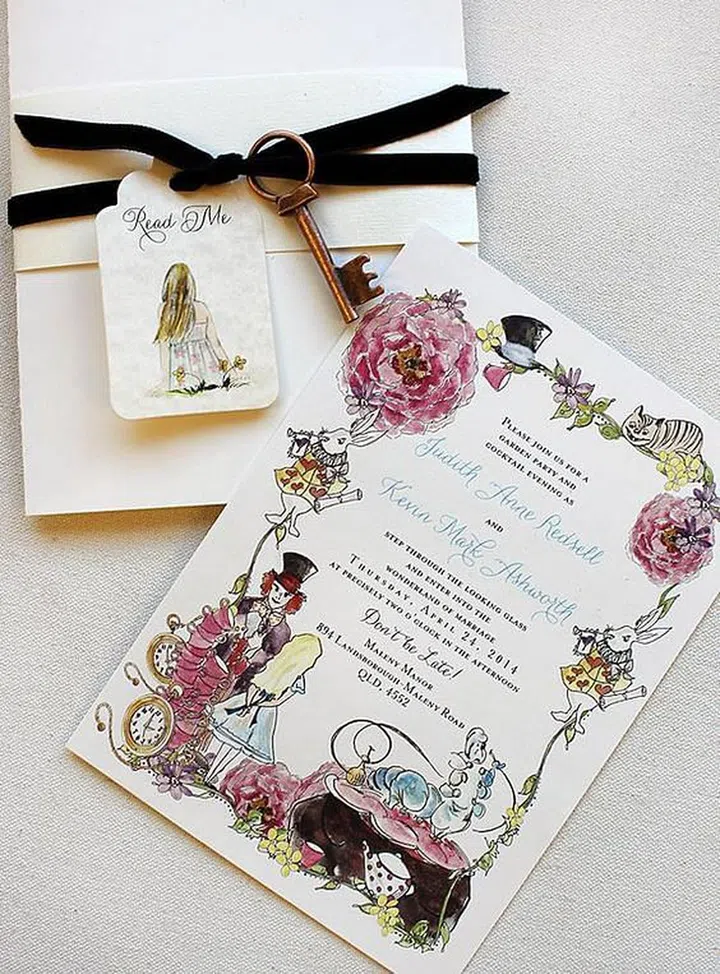 Read Me
Please join us for a
garden party and
cocktail evening as
Judith Anne Redsell
and
Kevin Mark Ashworth
step through the looking glass
and enter into the
wonderland of marriage
Thursday, April 24, 2014
at precisely two o'clock in the afternoon
Don't be Late!
Maleny Manor
894 Landsborough-Maleny Road
QLD, 4552